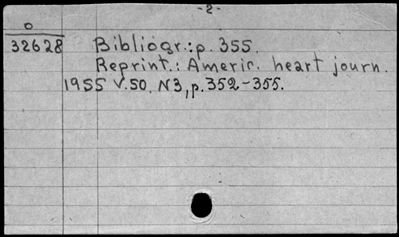 -2-
O
32628 Bibliogr.: p. 355.
Reprint.: Americ. heart journ.
1955 V.50, N3, p. 352-355.